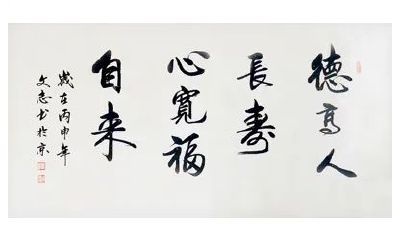 德高人
長壽
心寬福
自来
歲在丙申年
文志书於京